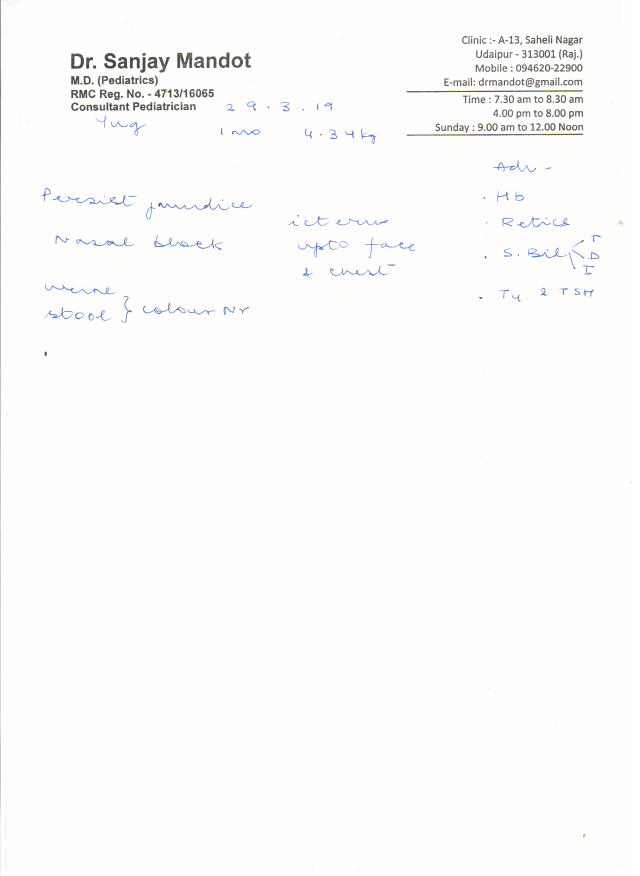 Dr. Sanjay Mandot
M.D. (Pediatrics)
RMC Reg. No. - 4713/16065
Consultant Pediatrician
Clinic :- A-13, Saheli Nagar
Udaipur - 313001 (Raj.)
Mobile : 094620-22900
E-mail: drmandot@gmail.com
Time : 7.30 am to 8.30 am
4.00 pm to 8.00 pm
Sunday : 9.00 am to 12.00 Noon
29.3.19
Yug 1 mo 4.34 kg
Persist jaundice
Nasal block
urine
stool } colour Nr
icterus
upto face
& chest
Adv -
. Hb
. Retics
. S. Bil < T D I
. T4 & TSH